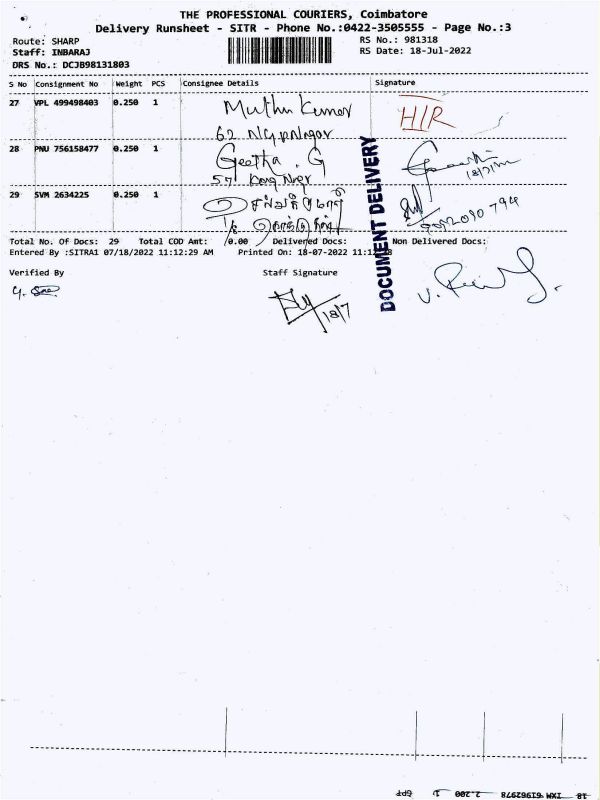 THE PROFESSIONAL COURIERS, Coimbatore
Delivery Runsheet - SITR - Phone No.:0422-3505555 - Page No.:3
Route: SHARP
Staff: INBARAJ
DRS No.: DCJB98131803
RS No.: 981318
RS Date: 18-Jul-2022
S No Consignment No Weight PCS Consignee Details Signature
27 VPL 499498403 0.250 1 Muthu Kumar H/R
62 NGP Nagar
28 PNU 756158477 0.250 1 Geetha . G
57 Nagar
29 SVM 2634225 0.250 1
DOCUMENT DELIVERY
Total No. Of Docs: 29 Total COD Amt: 0.00 Delivered Docs: Non Delivered Docs:
Entered By :SITRA1 07/18/2022 11:12:29 AM Printed On: 18-07-2022
Verified By Staff Signature
18/7